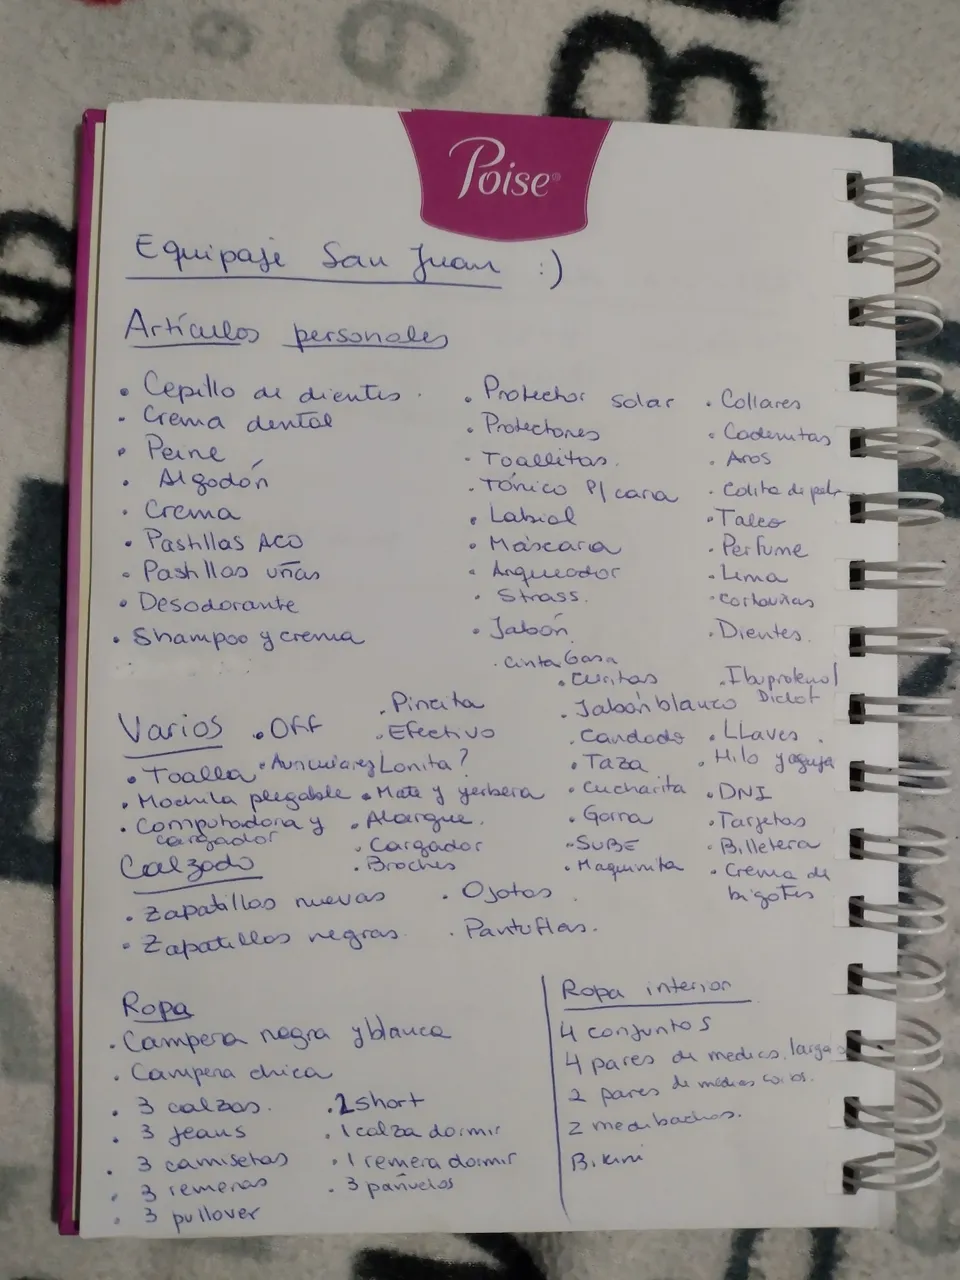 Poise
Equipaje San Juan :)
Artículos personales
• Cepillo de dientes.
• Crema dental
• Peine
• Algodón
• Crema
• Pastillas ACO
• Pastillas uñas
• Desodorante
• Shampoo y crema
• Protector solar
• Protectores
• Toallitas.
• Tónico P/ cara
• Labial
• Máscara
• Arqueador
• Strass.
• Jabón
• Cinta Gasa
• Curitas
• Collares
• Cadenitas
• Aros
• Colita de pelo
• Talco
• Perfume
• Lima
• Cortauñas
• Dientes.
• Ibuprofeno/
Varios
• Toalla
• Mochila plegable
• Computadora y
cargador
• Off
• Auriculares
• Pincita
• Efectivo
Lonita?
• Mate y yerbera
• Alargue.
• Cargador
• Broches
• Jabón blanco
• Candado
• Taza
• Cucharita
• Gorra
• SUBE
• Maquinita
• Llaves.
• Hilo y aguja
• DNI
• Tarjetas
• Billetera
• Crema de
bigotes
Calzado
• Zapatillas nuevas
• Zapatillas negras.
• Ojotas
• Pantuflas.
Ropa
• Campera negra y blanca
• Campera chica
• 3 calzas.
• 3 jeans
• 3 camisetas
• 3 remeras
• 3 pullover
• short
• 1 calza dormir
• 1 remera dormir
• 3 pañuelos
Ropa interior
4 conjuntos
4 pares de medias largas
2 pares de medias
2 medibachas.
Bikini